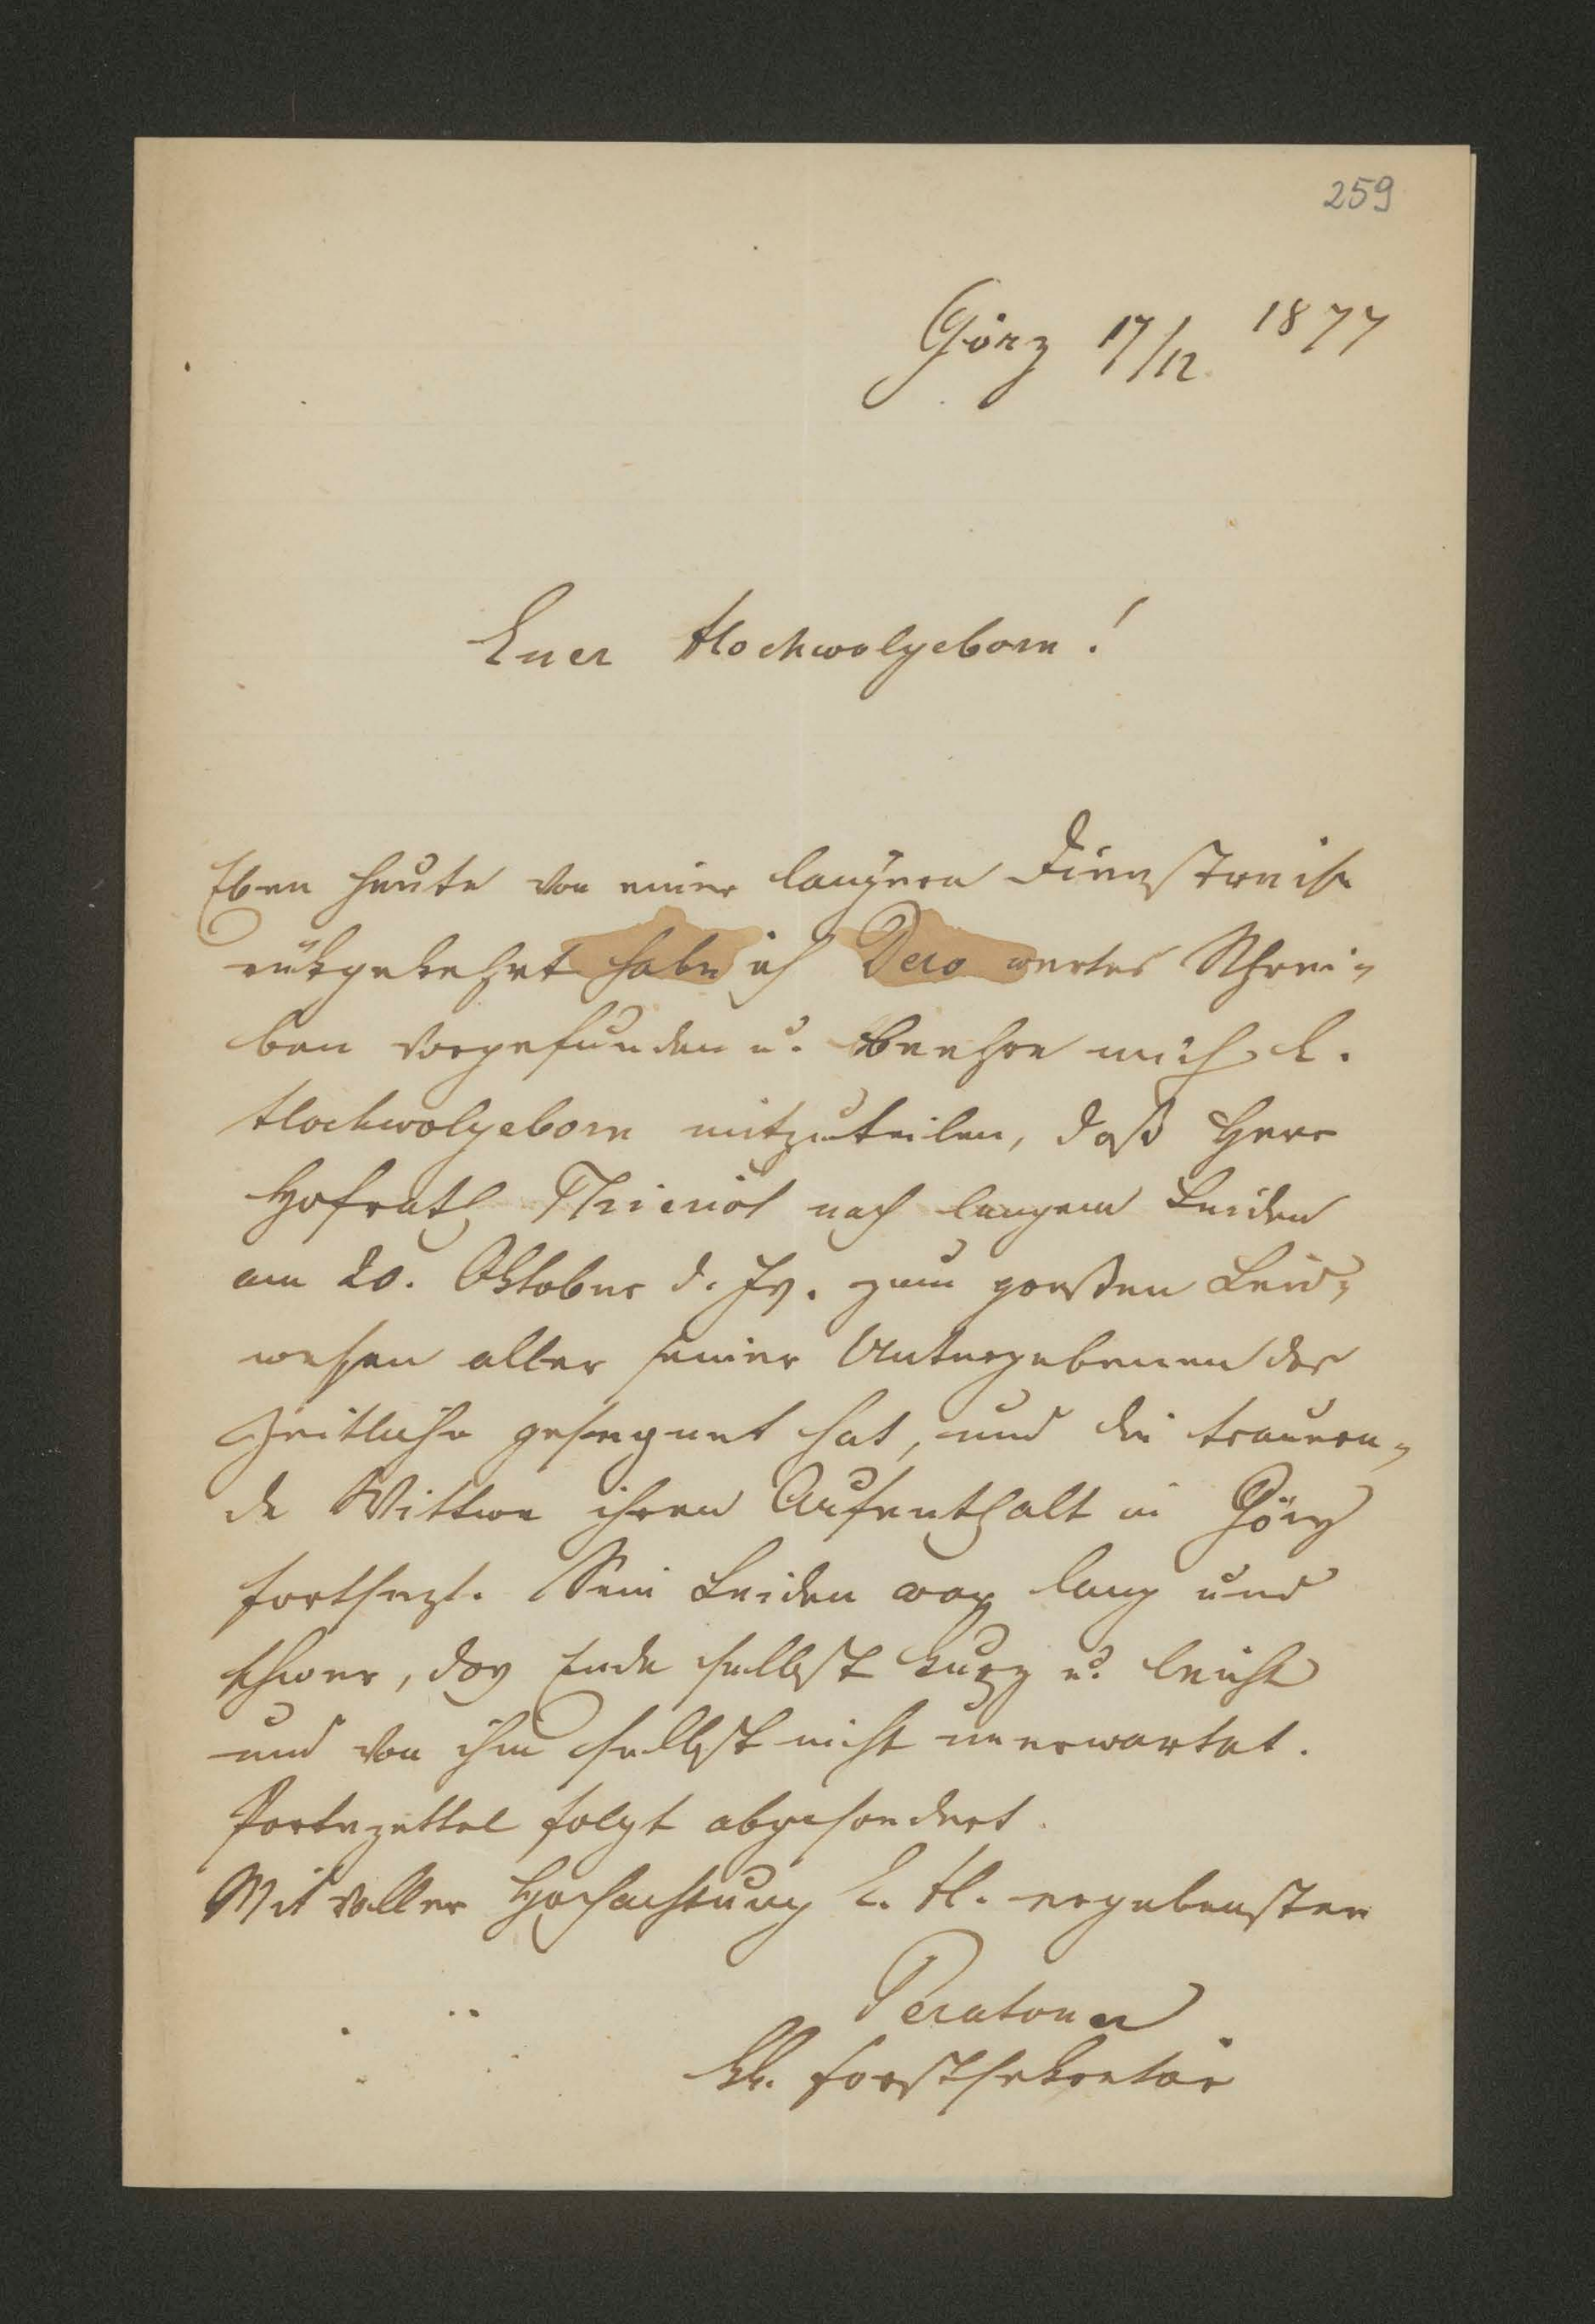 259
Görz 17/12 1877
Euer Hochwolgeborn!
Eben heute von einer langern Dienstreise
rükgekehrt habe ich Dero wertes Schrei-
ben vorgefunden u. beehre mich E.
Hochwolgeborn mitzuteilen, daß Herr
Hofrath Thieriot nach langem Leiden
am 20. Oktober d. Js. zum großen Leid-
wesen aller seiner Untergebenen das
Zeitliche gesegnet hat, und die trauern-
de Wittwe ihren Aufenthalt in Görz
fortsezt. Sein Leiden war lang und
schwer, das Ende selbst kurz u. leicht
und von ihm selbst nicht unerwartet.
Partezettel folgt abgesondert.
Mit voller Hochachtung E. H. ergebenster
Peratoner
kk. Forstsekretär